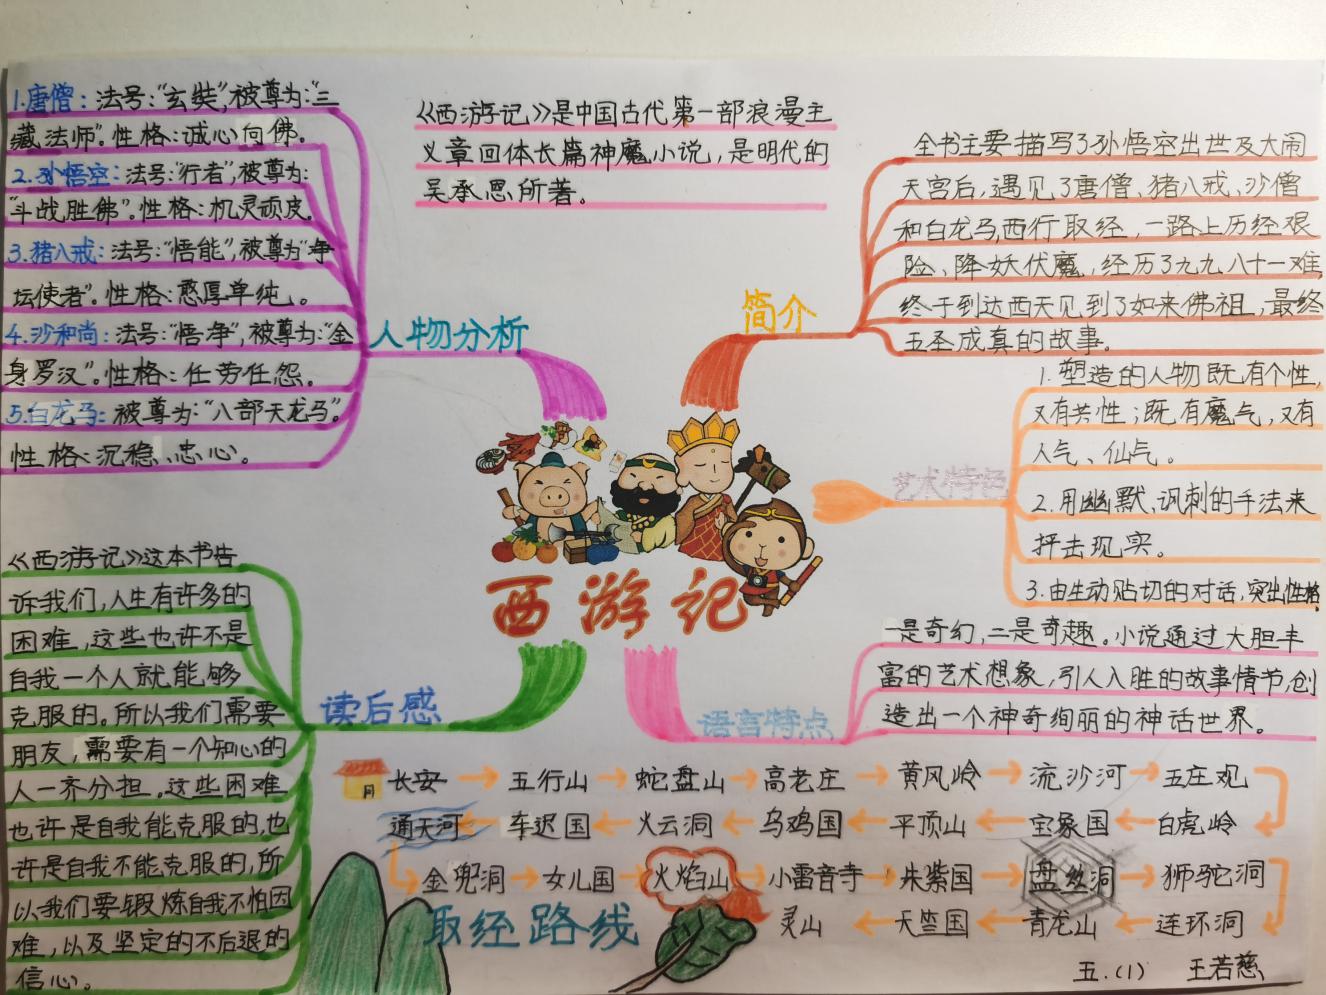 1.唐僧：法号："玄奘"，被尊为："三
藏法师"。性格：诚心向佛。
2.孙悟空：法号："行者"，被尊为：
"斗战胜佛"。性格：机灵顽皮。
3.猪八戒：法号："悟能"，被尊为"净
坛使者"。性格：憨厚单纯。
4.沙和尚：法号："悟净"，被尊为："金
身罗汉"。性格：任劳任怨。
5.白龙马：被尊为："八部天龙马"。
性格：沉稳、忠心。
人物分析
《西游记》是中国古代第一部浪漫主
义章回体长篇神魔小说，是明代的
吴承恩所著。
简介
全书主要描写了孙悟空出世及大闹
天宫后，遇见了唐僧、猪八戒、沙僧
和白龙马，西行取经，一路上历经艰
险、降妖伏魔，经历了九九八十一难，
终于到达西天见到了如来佛祖，最终
五圣成真的故事。
艺术特色
1.塑造的人物既有个性，
又有共性；既有魔气，又有
人气、仙气。
2.用幽默、讽刺的手法来
抨击现实。
3.由生动贴切的对话，突出性格。
西游记
语言特点
一是奇幻，二是奇趣。小说通过大胆丰
富的艺术想象，引人入胜的故事情节，创
造出一个神奇绚丽的神话世界。
读后感
《西游记》这本书告
诉我们，人生有许多的
困难，这些也许不是
自我一个人就能够
克服的。所以我们需要
朋友，需要有一个知心的
人一齐分担。这些困难
也许是自我能克服的，也
许是自我不能克服的，所
以我们要锻炼自我不怕困
难，以及坚定的不后退的
信心。
长安→五行山→蛇盘山→高老庄→黄风岭→流沙河→五庄观
通天河←车迟国←火云洞←乌鸡国←平顶山←宝象国←白虎岭
金兜洞→女儿国→火焰山→小雷音寺→朱紫国→盘丝洞→狮驼洞
灵山←天竺国←青龙山←连环洞
取经路线
五.(1) 王若慈